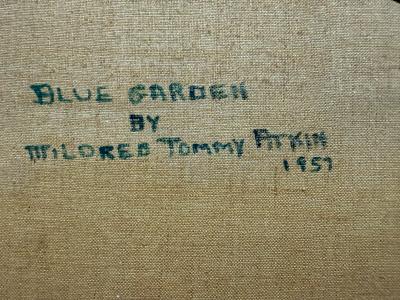 BLUE GARDEN
BY
MILDRED TOMMY ATKIN
1957